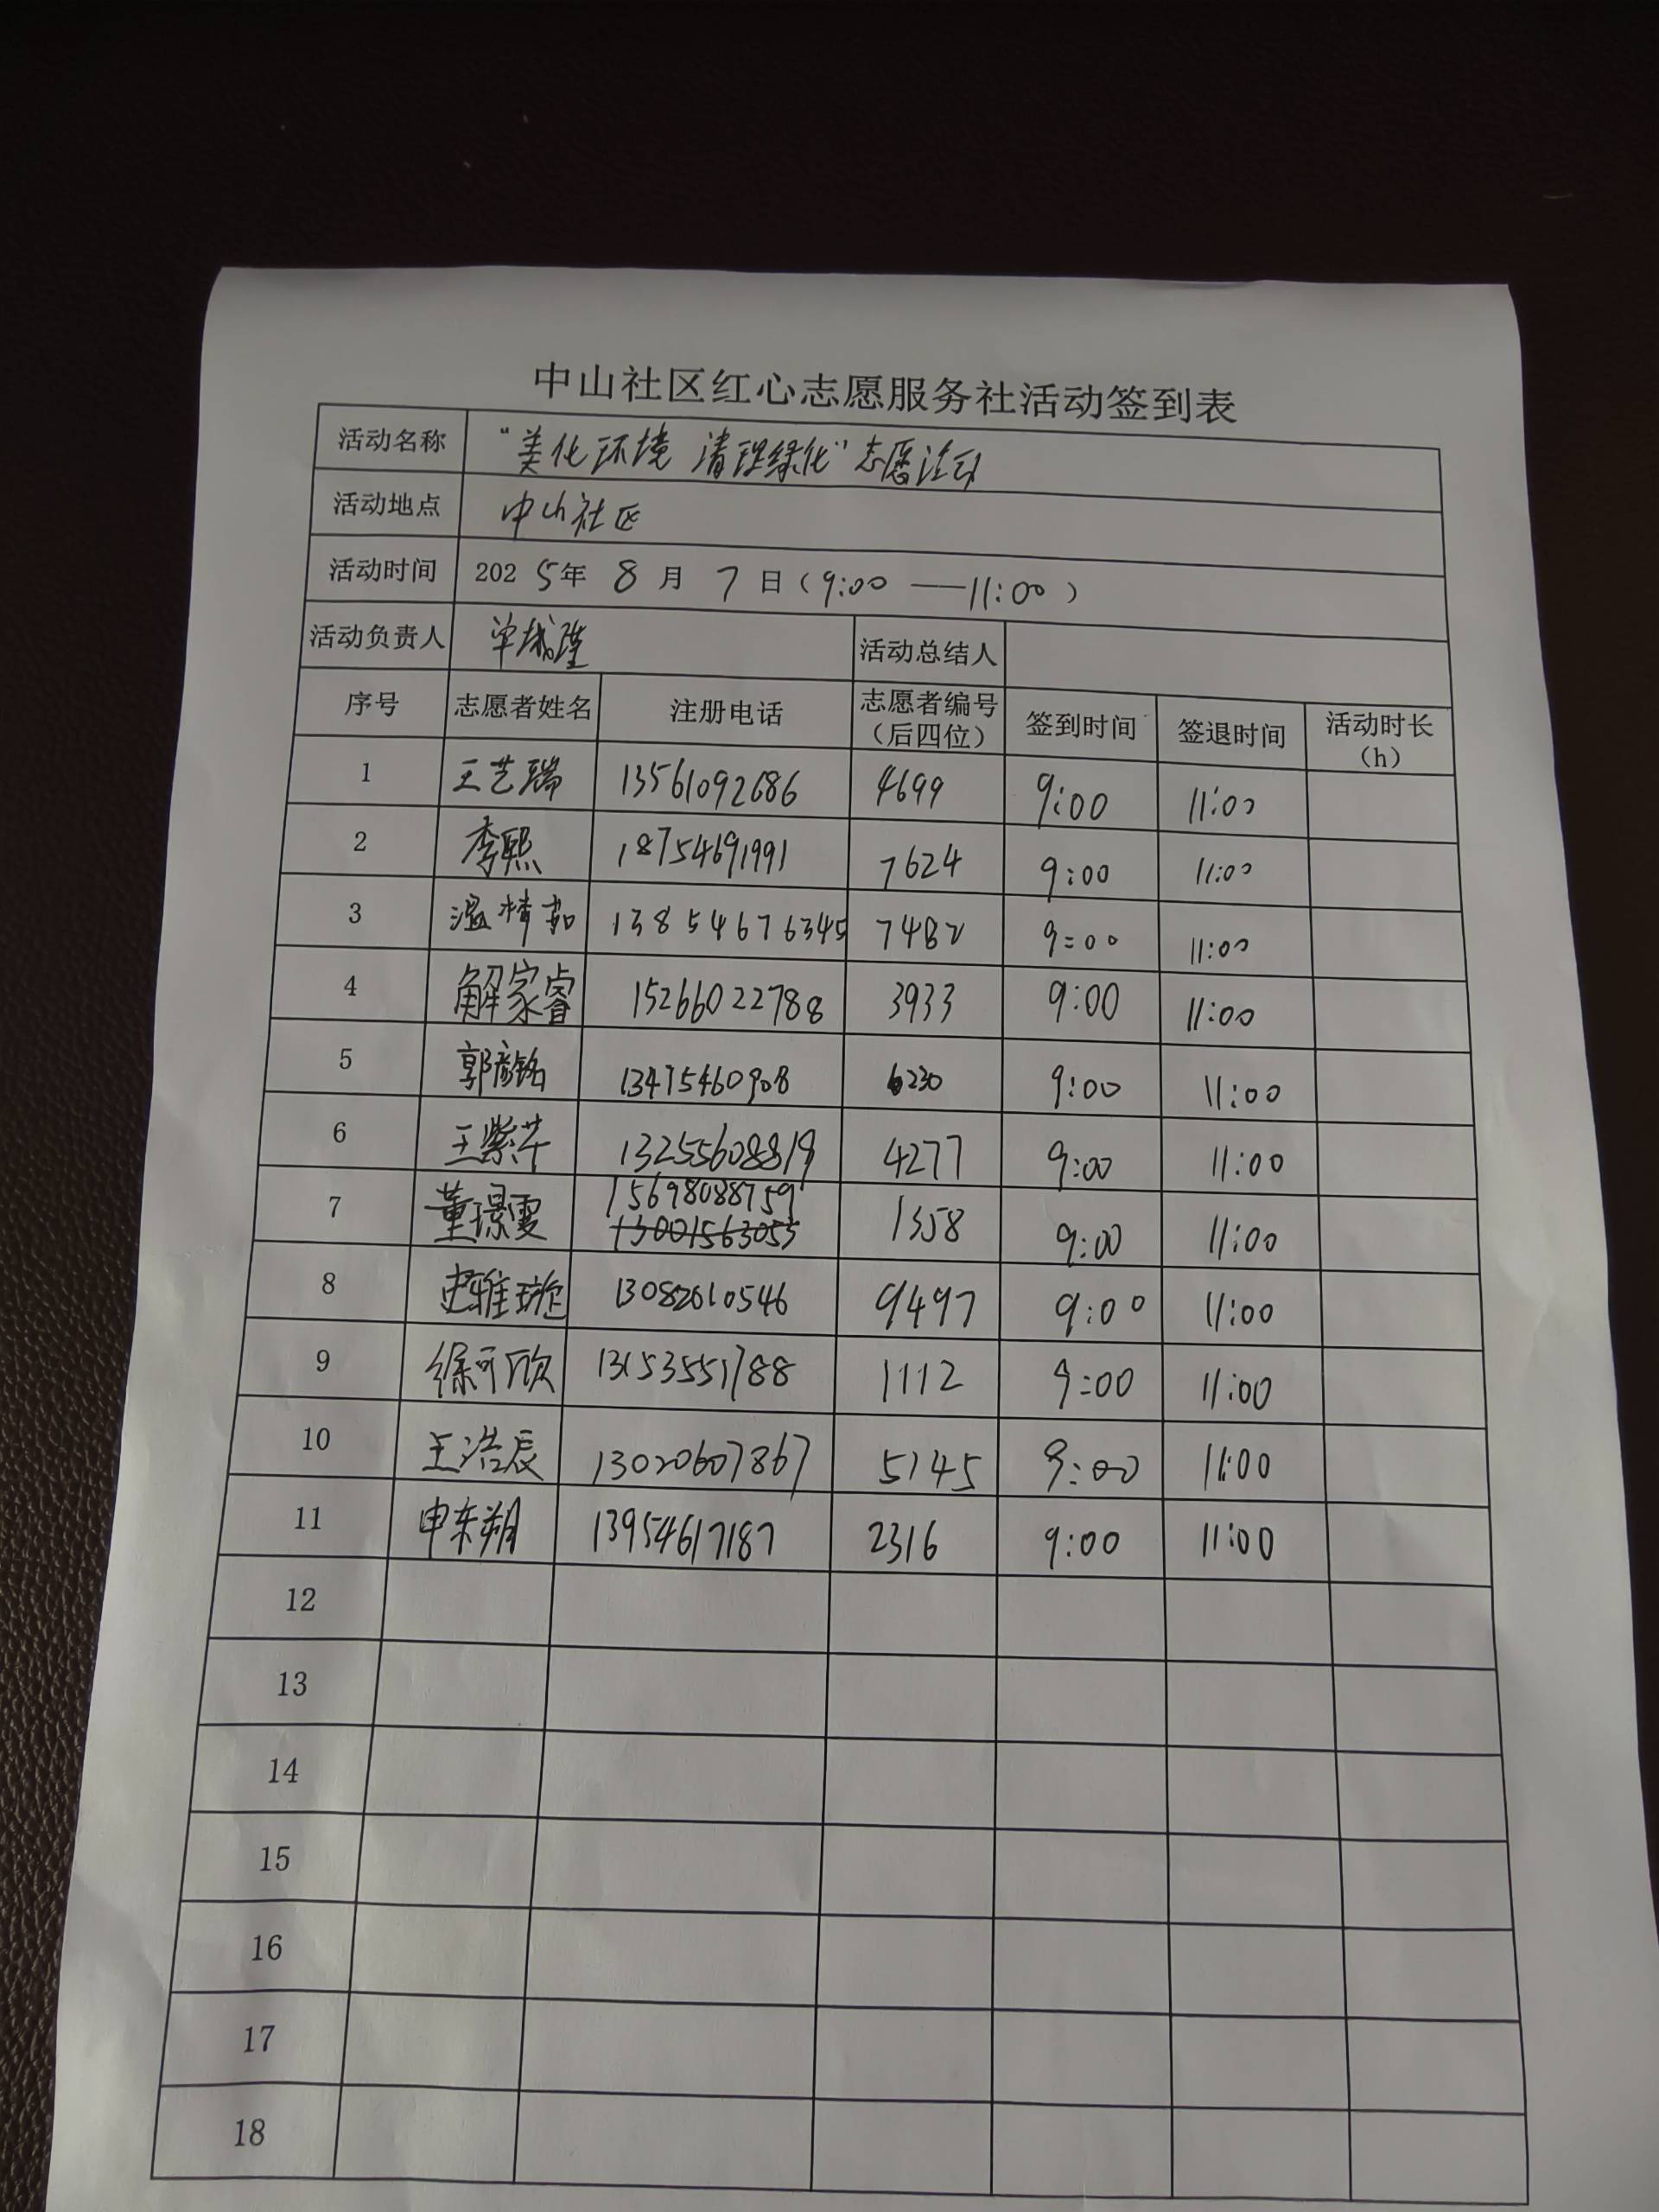 中山社区红心志愿服务社活动签到表
活动名称 “美化环境 清理绿化”志愿活动
活动地点 中山社区
活动时间 2025年 8 月 7 日(9:00 ——11:00 )
活动负责人 活动总结人
序号 志愿者姓名 注册电话 志愿者编号(后四位) 签到时间 签退时间 活动时长(h)
1 王艺瑞 13561092686 4699 9:00 11:00
2 李熙 18754691991 7624 9:00 11:00
3 温婧茹 13854676345 7482 9:00 11:00
4 解家睿 15266022788 3933 9:00 11:00
5 郭彦铭 13475460908 6230 9:00 11:00
6 王紫芊 13255608819 4277 9:00 11:00
7 董璟雯 15698088759 1358 9:00 11:00
13001563053
8 史雅璇 13082610546 9497 9:00 11:00
9 徐可欣 13153551788 1112 9:00 11:00
10 王浩辰 13020607867 5145 9:00 11:00
11 申东朔 13954617187 2316 9:00 11:00
12
13
14
15
16
17
18